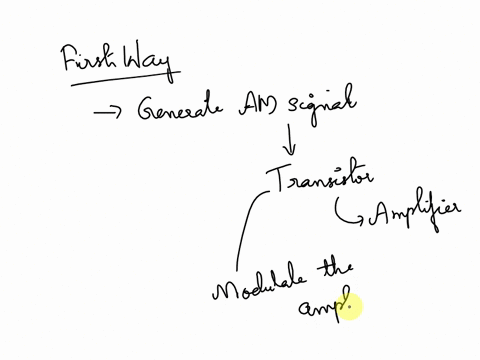 First Way
→ Generate AM signal
Transistor
Amplifier
Modulate the
ampl